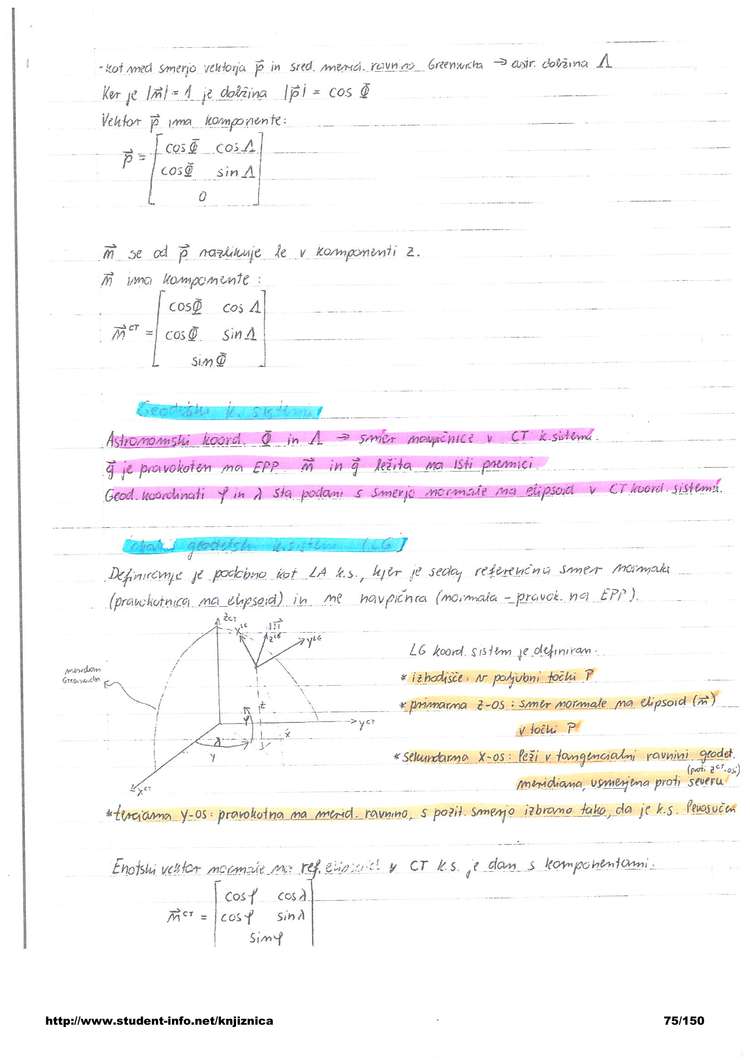 - kot med smerjo vektorja p⃗ in sred. merid. ravnino Greenwicha → astr. dolžina Λ
Ker je |n⃗| = 1 je dolžina |p⃗| = cos Φ
Vektor p⃗ ima komponente:
p⃗ = [ cosΦ cosΛ
cosΦ sinΛ
0 ]
n⃗ se od p⃗ razlikuje le v komponenti z.
n⃗ ima komponente:
n⃗ᶜᵀ = [ cosΦ cosΛ
cosΦ sinΛ
sinΦ ]
Geodetski k. sistemi
Astronomski koord. Φ in Λ → smer navpičnice v CT k. sistemu.
g⃗ je pravokoten na EPP. n⃗ in g⃗ ležita na isti premici
Geod. koordinati φ in λ sta podani s smerjo normale na elipsoid v CT koord. sistemu.
geodetski k. sistem (LG)
Definiranje je podobno kot LA k.s., kjer je sedaj referenčna smer normala
(pravokotnica na elipsoid) in ne navpičnica (normala – pravok. na EPP).
zCT
xLG zLG yLG
meridian
Greenwicha
yCT
φ z
λ x
y
xCT
LG koord. sistem je definiran:
* izhodišče: v poljubni točki P
* primarna z-os: smer normale na elipsoid (n⃗)
v točki P
* sekundarna x-os: leži v tangencialni ravnini geodet.
meridiana, usmerjena proti severu (proti zCT-osi)
* terciarna y-os: pravokotna na merid. ravnino, s pozit. smerjo izbrano tako, da je k.s. levosučen
Enotski vektor normale na ref. elipsoid v CT k.s. je dan s komponentami:
n⃗ᶜᵀ = [ cosφ cosλ
cosφ sinλ
sinφ ]
http://www.student-info.net/knjiznica 75/150